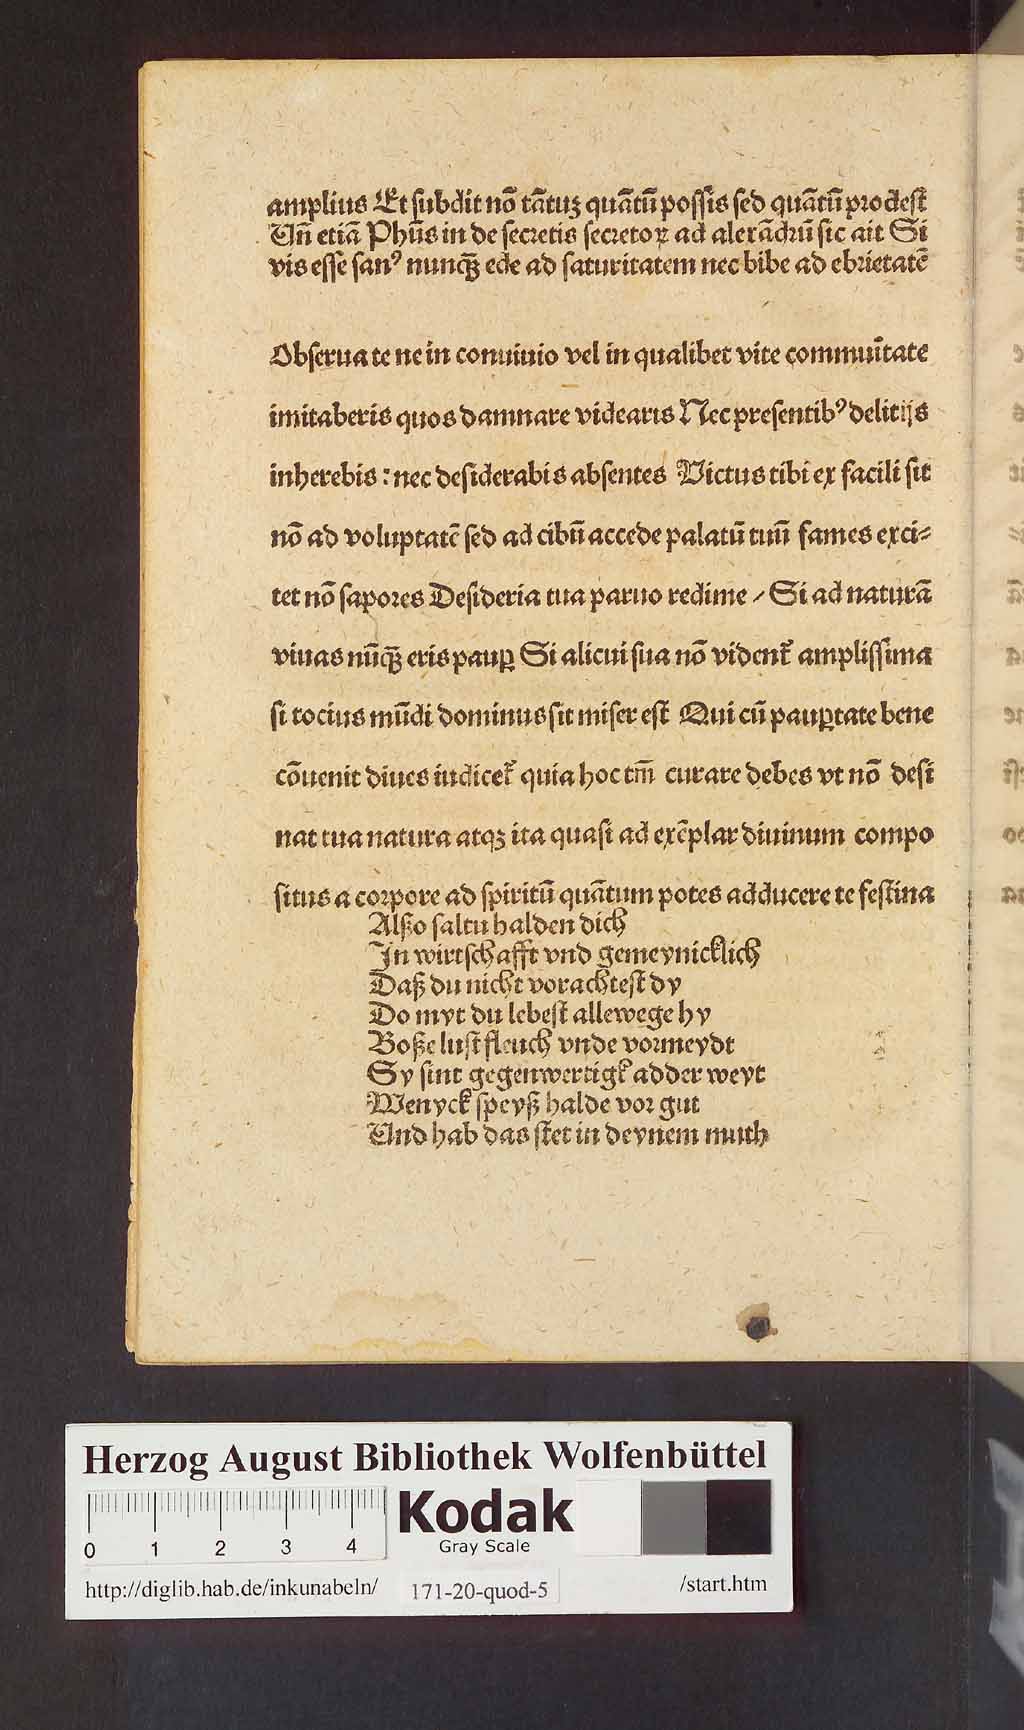 amplius Et subdit nō tātuꝫ quātū possis sed quātū prodest̄
Uñ etiā Phūs in de secretis secretoꝝ ad alexādrū sic ait Si
vis esse sanꝰ nunqꝫ ede ad saturitatem nec bibe ad ebrietatē
Obserua te ne in conuiuio vel in qualibet vite commuītate
imitaberis quos damnare videaris Nec presentibꝰ delitijs
inherebis : nec desiderabis absentes Victus tibi ex facili sit
nō ad voluptatē sed ad cibū accede palatū tuū fames exci⸗
tet nō sapores Desideria tua paruo redime / Si ad naturā
viuas nūqꝫ eris paup̱ Si alicui sua nō vident̄ amplissima
si tocius mūdi dominus sit miser est Qui cū paup̱tate bene
cōuenit diues iudicet̄ quia hoc tm̄ curare debes vt nō desi
nat tua natura atqꝫ ita quasi ad exēplar diuinum compo
situs a corpore ad spiritū quātum potes adducere te festina
Alßo saltu halden dich
In wirtschafft vnd gemeynicklich
Daß du nicht vorachtest dy
Do myt du lebest allewege hy
Boße lust fleuch vnde vormeydt
Sy sint gegenwertigk adder weyt
Wenyck speyß halde vor gut
Und hab das stet in deynem muth
Herzog August Bibliothek Wolfenbüttel
0 1 2 3 4
Kodak
Gray Scale
http://diglib.hab.de/inkunabeln/ 171-20-quod-5 /start.htm